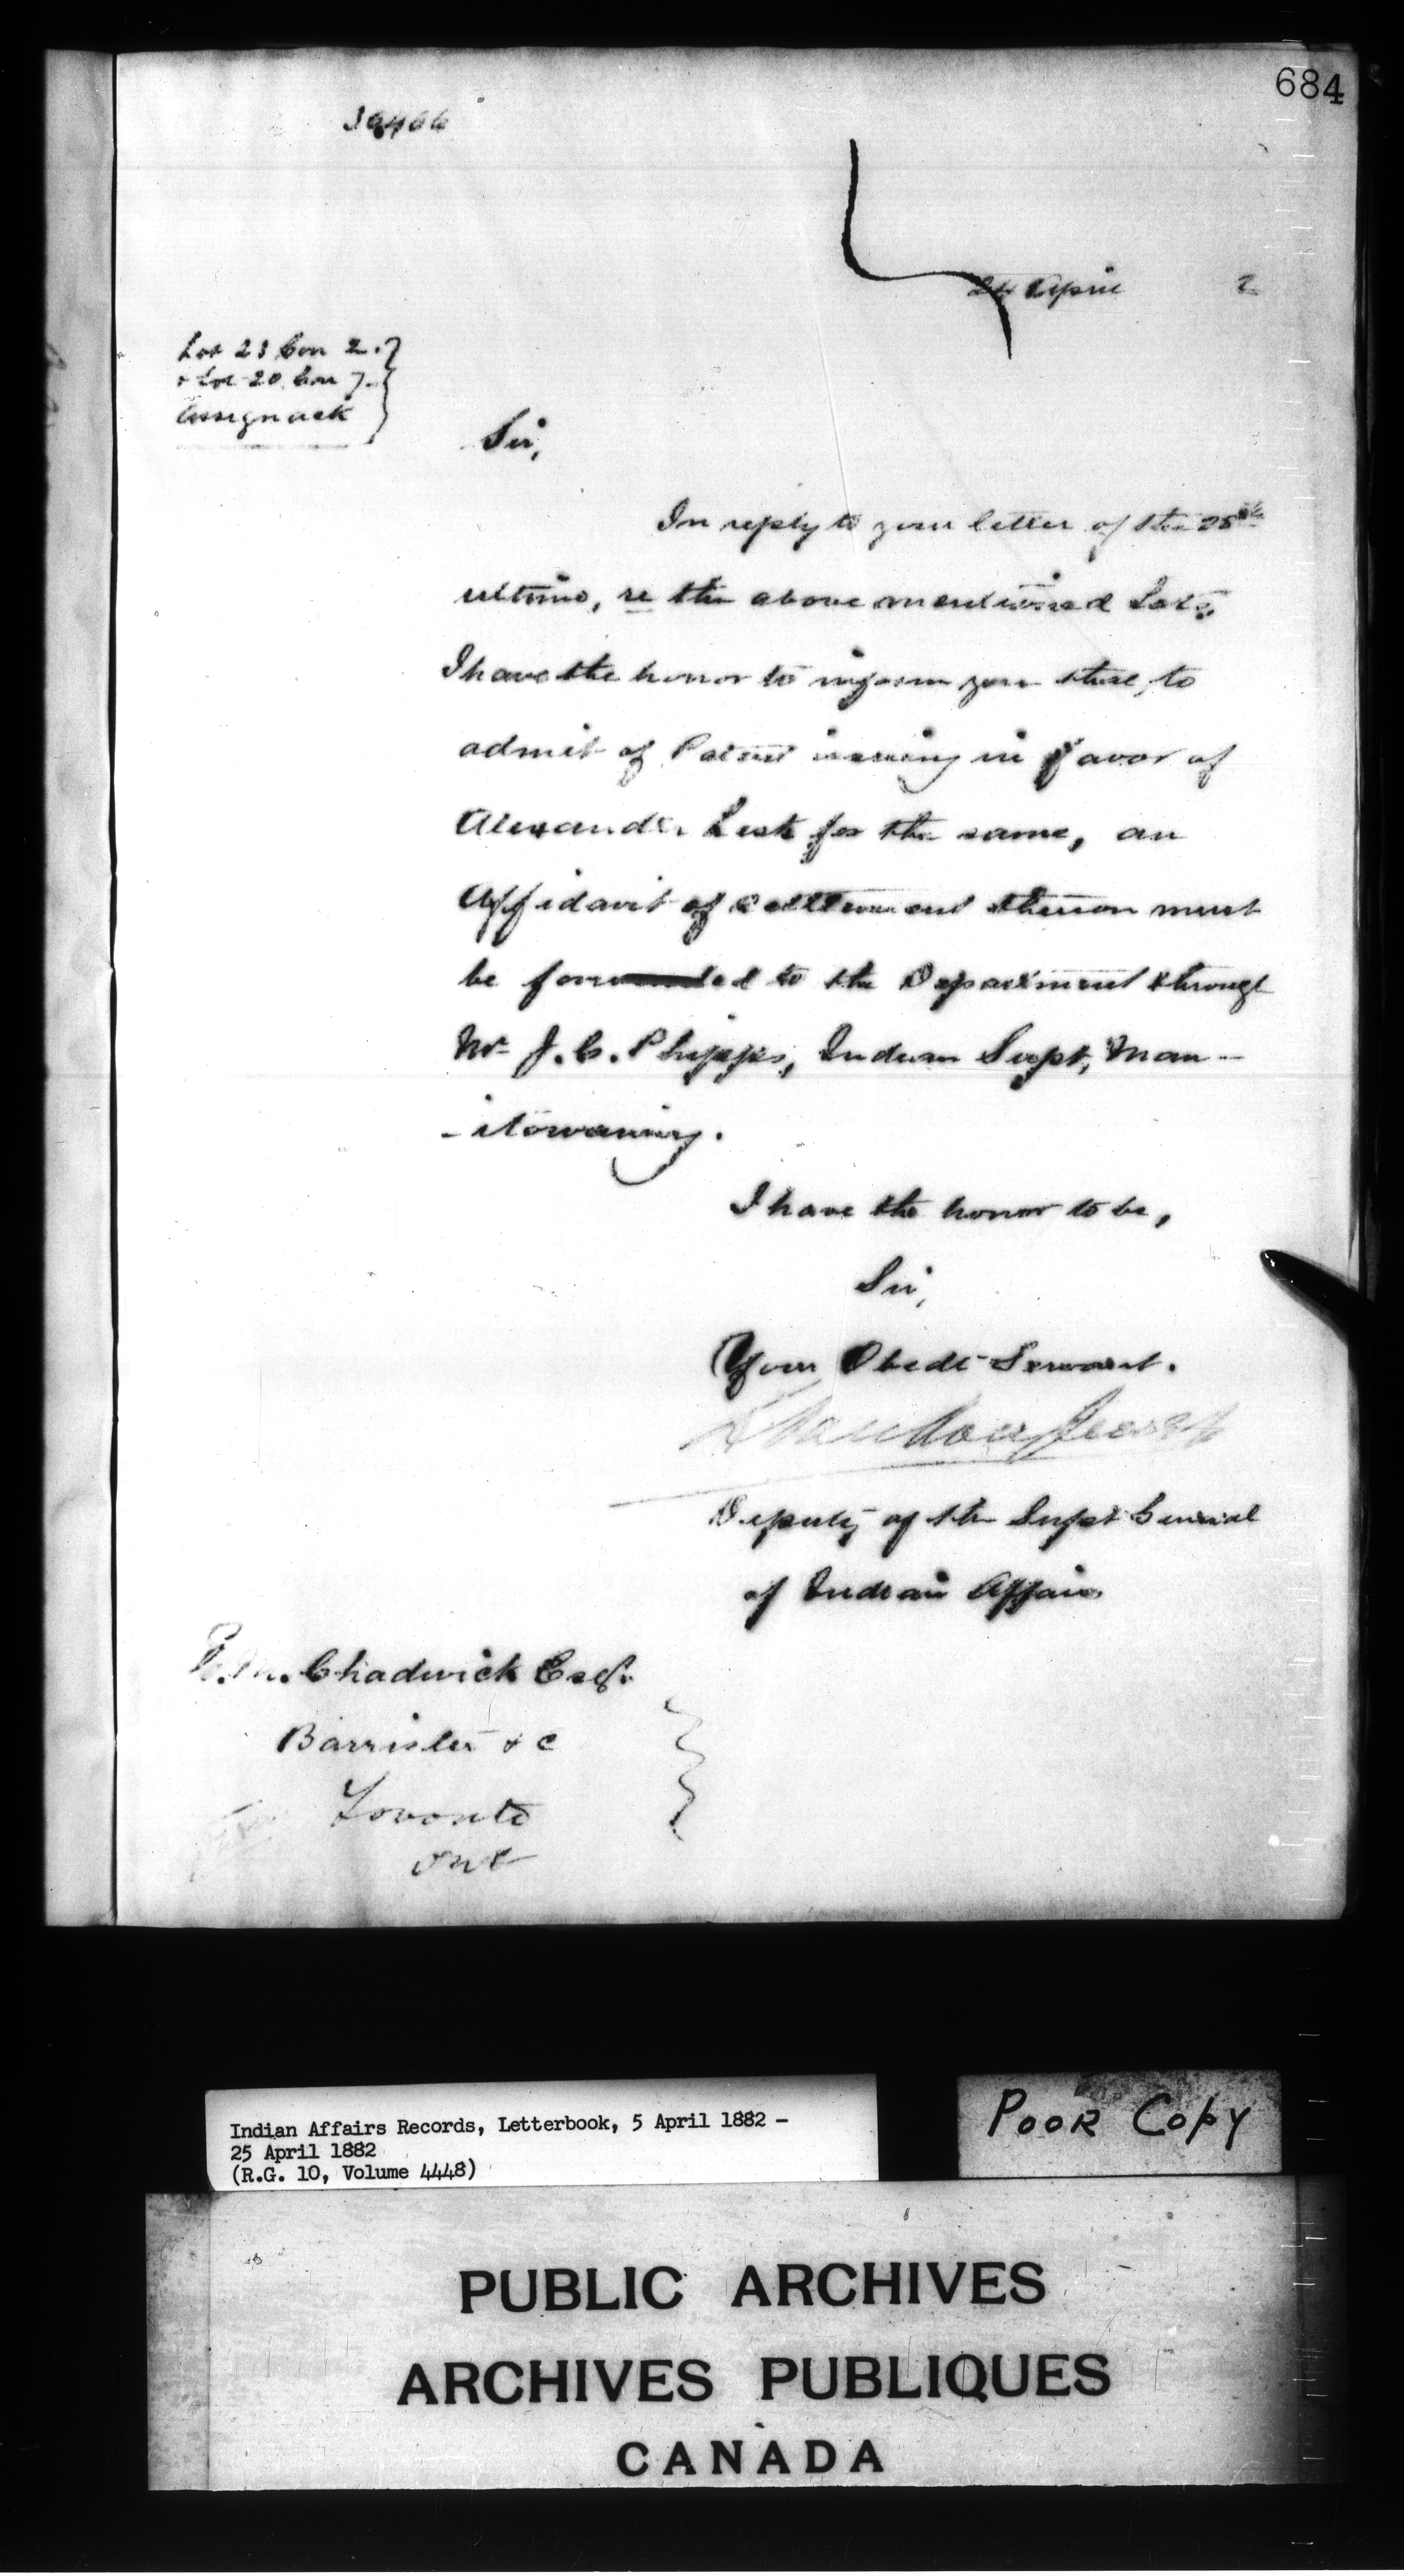 684
24 April 2
Lot 23 Con 2.
& Lot 20 Con 7.
Assignack
Sir,
In reply to your letter of the 28th
ultimo, re the above mentioned Lots,
I have the honor to inform you that, to
admit of Patent issuing in favor of
Alexander Leask for the same, an
Affidavit of settlement thereon must
be forwarded to the Department through
Mr J. C. Phipps, Indian Supt, Man-
-itowaning.
I have the honor to be,
Sir,
Your Obedt Servant.
L Vankoughnet
Deputy of the Supt General
of Indian Affairs
E. M. Chadwick Esq.
Barrister & c
Toronto
Ont
Indian Affairs Records, Letterbook, 5 April 1882 -
25 April 1882
(R.G. 10, Volume 4448)
POOR COPY
PUBLIC ARCHIVES
ARCHIVES PUBLIQUES
CANADA